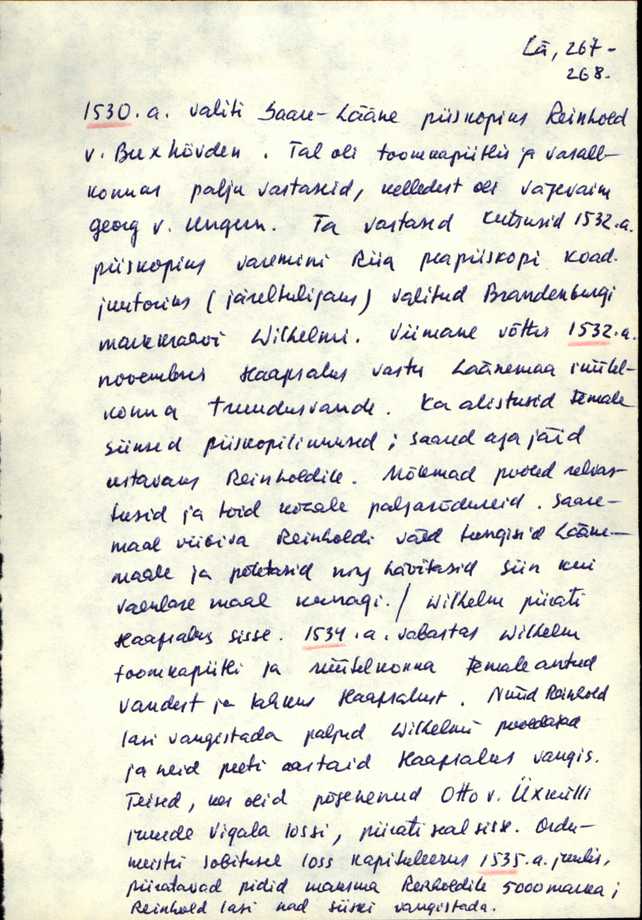 Lä, 267-
268.
1530. a. valiti Saare-Lääne piiskopiks Reinhold
v. Buxhövden. Tal oli toomkapiitlis ja vasall-
konnas palju vastaseid, kelledest oli vägevaim
Georg v. Ungern. Ta vastased kutsusid 1532. a.
piiskopiks varemini Riia peapiiskopi koad-
juutoriks (järeltulijaks) valitud Brandenburgi
markkraavi Wilhelmi. Viimane võttis 1532. a.
novembris Haapsalus vastu Läänemaa rüütel-
konna truudusvande. Ka alistusid temale
siinsed piiskopilinnused; saared aga jäid
ustavaks Reinholdile. Mõlemad pooled relvas-
tusid ja tõid kohale palgasõdureid. Saare-
maal viibiva Reinholdi väed tungisid Lääne-
maale ja põletasid ning hävitasid siin kui
vaenlase maal kunagi. / Wilhelm piirati
Haapsalus sisse. 1534. a. vabastas Wilhelm
toomkapiitli ja rüütelkonna temale antud
vandest ja lahkus Haapsalust. Nüüd Reinhold
lasi vangistada paljud Wilhelmi pooldajad
ja neid peeti aastaid Haapsalus vangis.
Teised, kes olid põgenenud Otto v. Üxkülli
juurde Vigala lossi, piirati seal sisse. Ordu-
meistri sobitusel loss kapituleerus 1535. a. juulis,
piiratavad pidid maksma Reinholdile 5000 marka;
Reinhold lasi nad siiski vangistada.